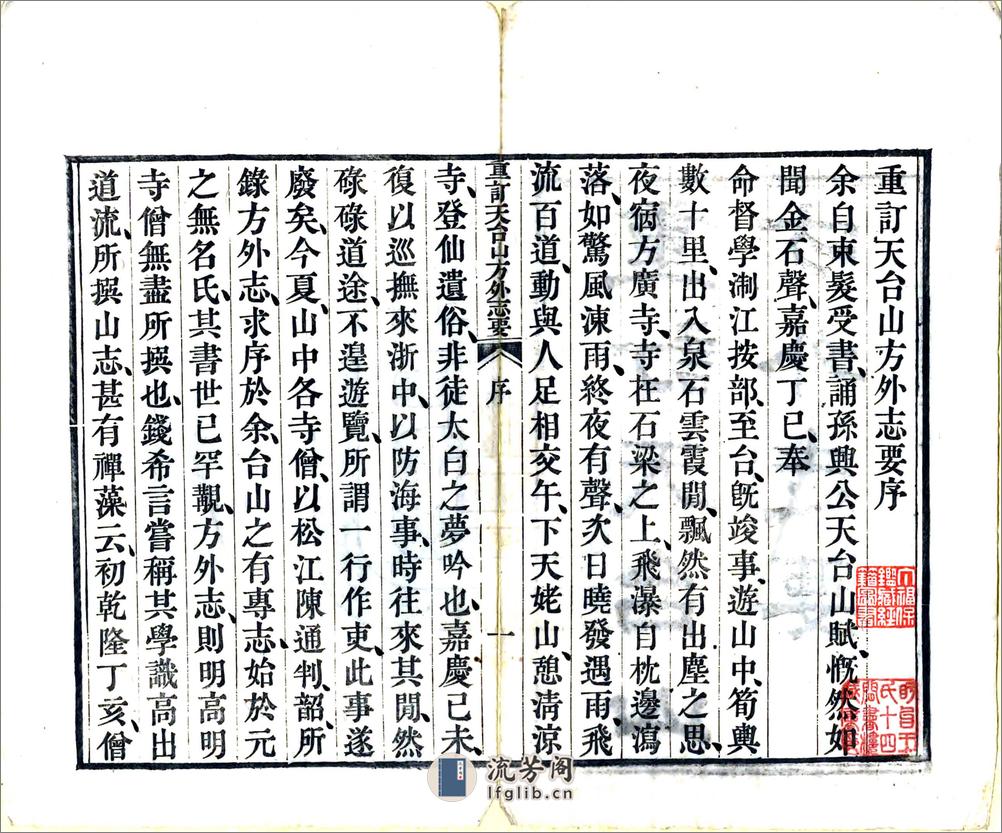 重訂天台山方外志要序
余自束髮受書、誦孫興公天台山賦、慨然如
聞金石聲、嘉慶丁巳、奉
命督學淛江按部、至台、旣竣事、遊山中、筍輿
數十里、出入泉石雲霞閒、飄然有出塵之思、
夜宿方廣寺、寺在石梁之上、飛瀑自枕邊瀉
落、如驚風涷雨、終夜有聲、次日曉發遇雨、飛
流百道、動與人足相交午、下天姥山、憩淸涼
重訂天台山方外志要 序 一
寺、登仙遺俗、非徒太白之夢吟也、嘉慶己未、
復以巡撫來浙中、以防海事、時往來其閒、然
碌碌道途、不遑遊覽、所謂一行作吏、此事遂
廢矣、今夏、山中各寺僧、以松江陳通判、韶、所
錄方外志、求序於余、台山之有專志、始於元
之無名氏、其書世已罕覯、方外志、則明高明
寺僧無盡所撰也、錢希言嘗稱其學識高出
道流、所撰山志、甚有禪藻云、初乾隆丁亥、僧
流芳阁
lfglib.cn